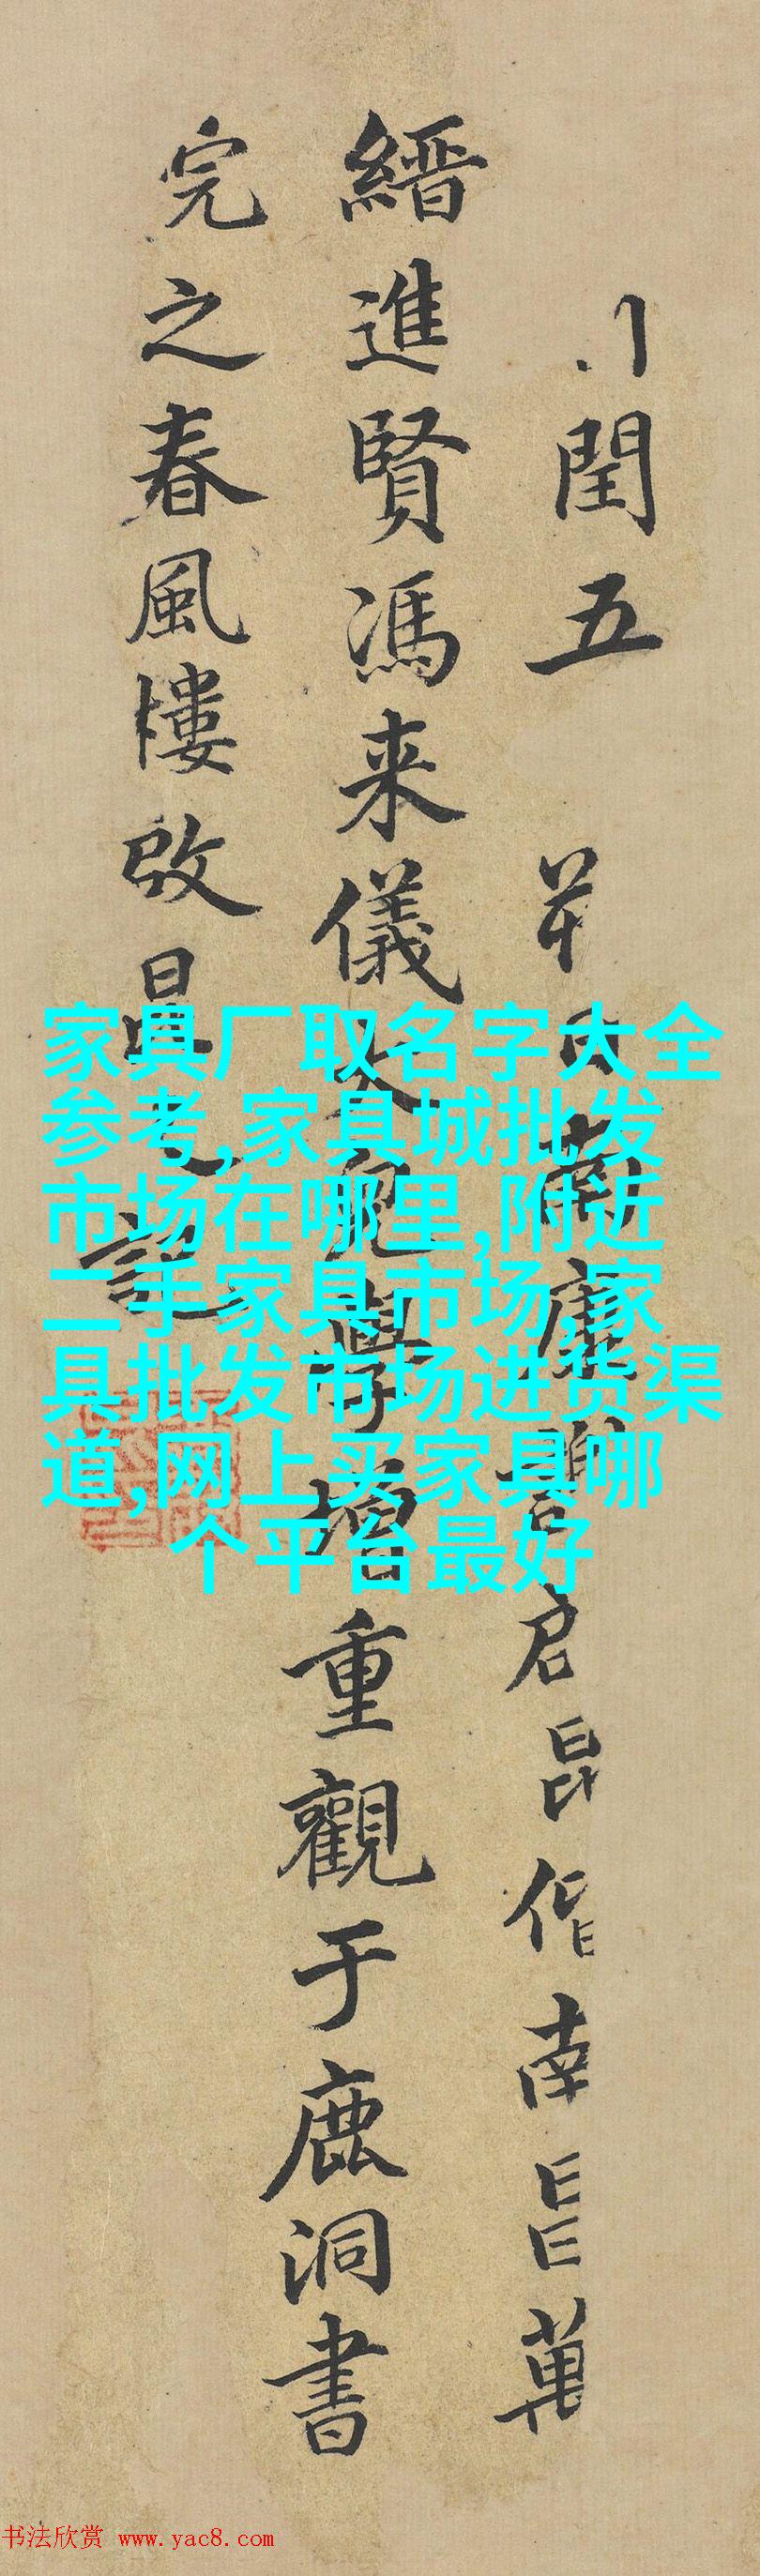 閏五
南康
君昆偕南昌萬
縉進賢馮来儀
學增重觀于鹿洞書
完之春風樓啟
家具厂取名字大全
参考,家具城批发
市场在哪里,附近
二手家具市场,家
具批发市场进货渠
道,网上买家具哪
个平台最好
书法欣赏 www.yac8.com